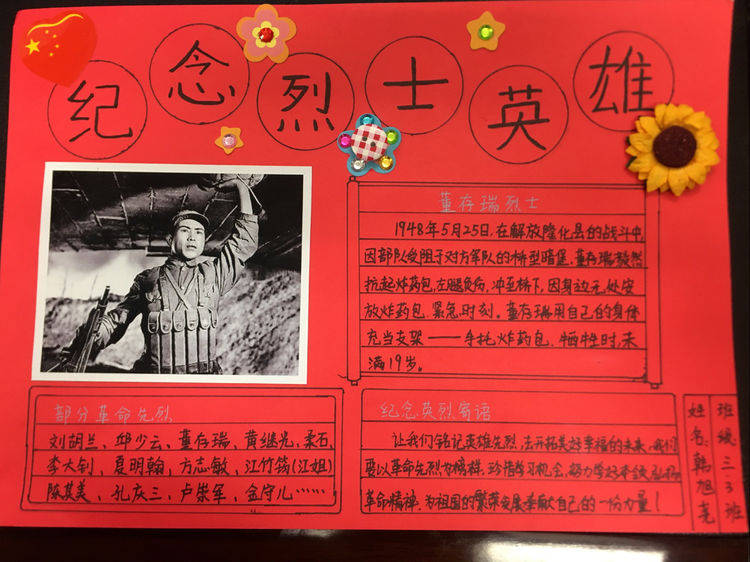 纪念烈士英雄
董存瑞烈士
1948年5月25日,在解放隆化县的战斗中,
因部队受阻于对方军队的桥型暗堡,董存瑞毅然
抗起炸药包,左腿负伤,冲至桥下,因身边无处安
放炸药包,紧急时刻。董存瑞用自己的身体
充当支架——手托炸药包,牺牲时,未
满19岁。
部分革命先烈
刘胡兰、邱少云、董存瑞、黄继光、柔石、
李大钊、夏明翰、方志敏、江竹筠(江姐)
陈其美、孔庆三、卢崇军、金守儿……
纪念英烈寄语
让我们铭记英雄先烈,去开拓美好幸福的未来,我们
要以革命先烈为榜样,珍惜学习机会,努力学好本领,弘扬
革命精神,为祖国的繁荣发展奉献自己的一份力量!
班级:三.3班
姓名:韩旭尧